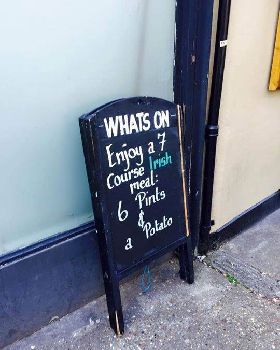 WHATS ON
Enjoy a 7
Course Irish
meal:
6 Pints
&
a Potato